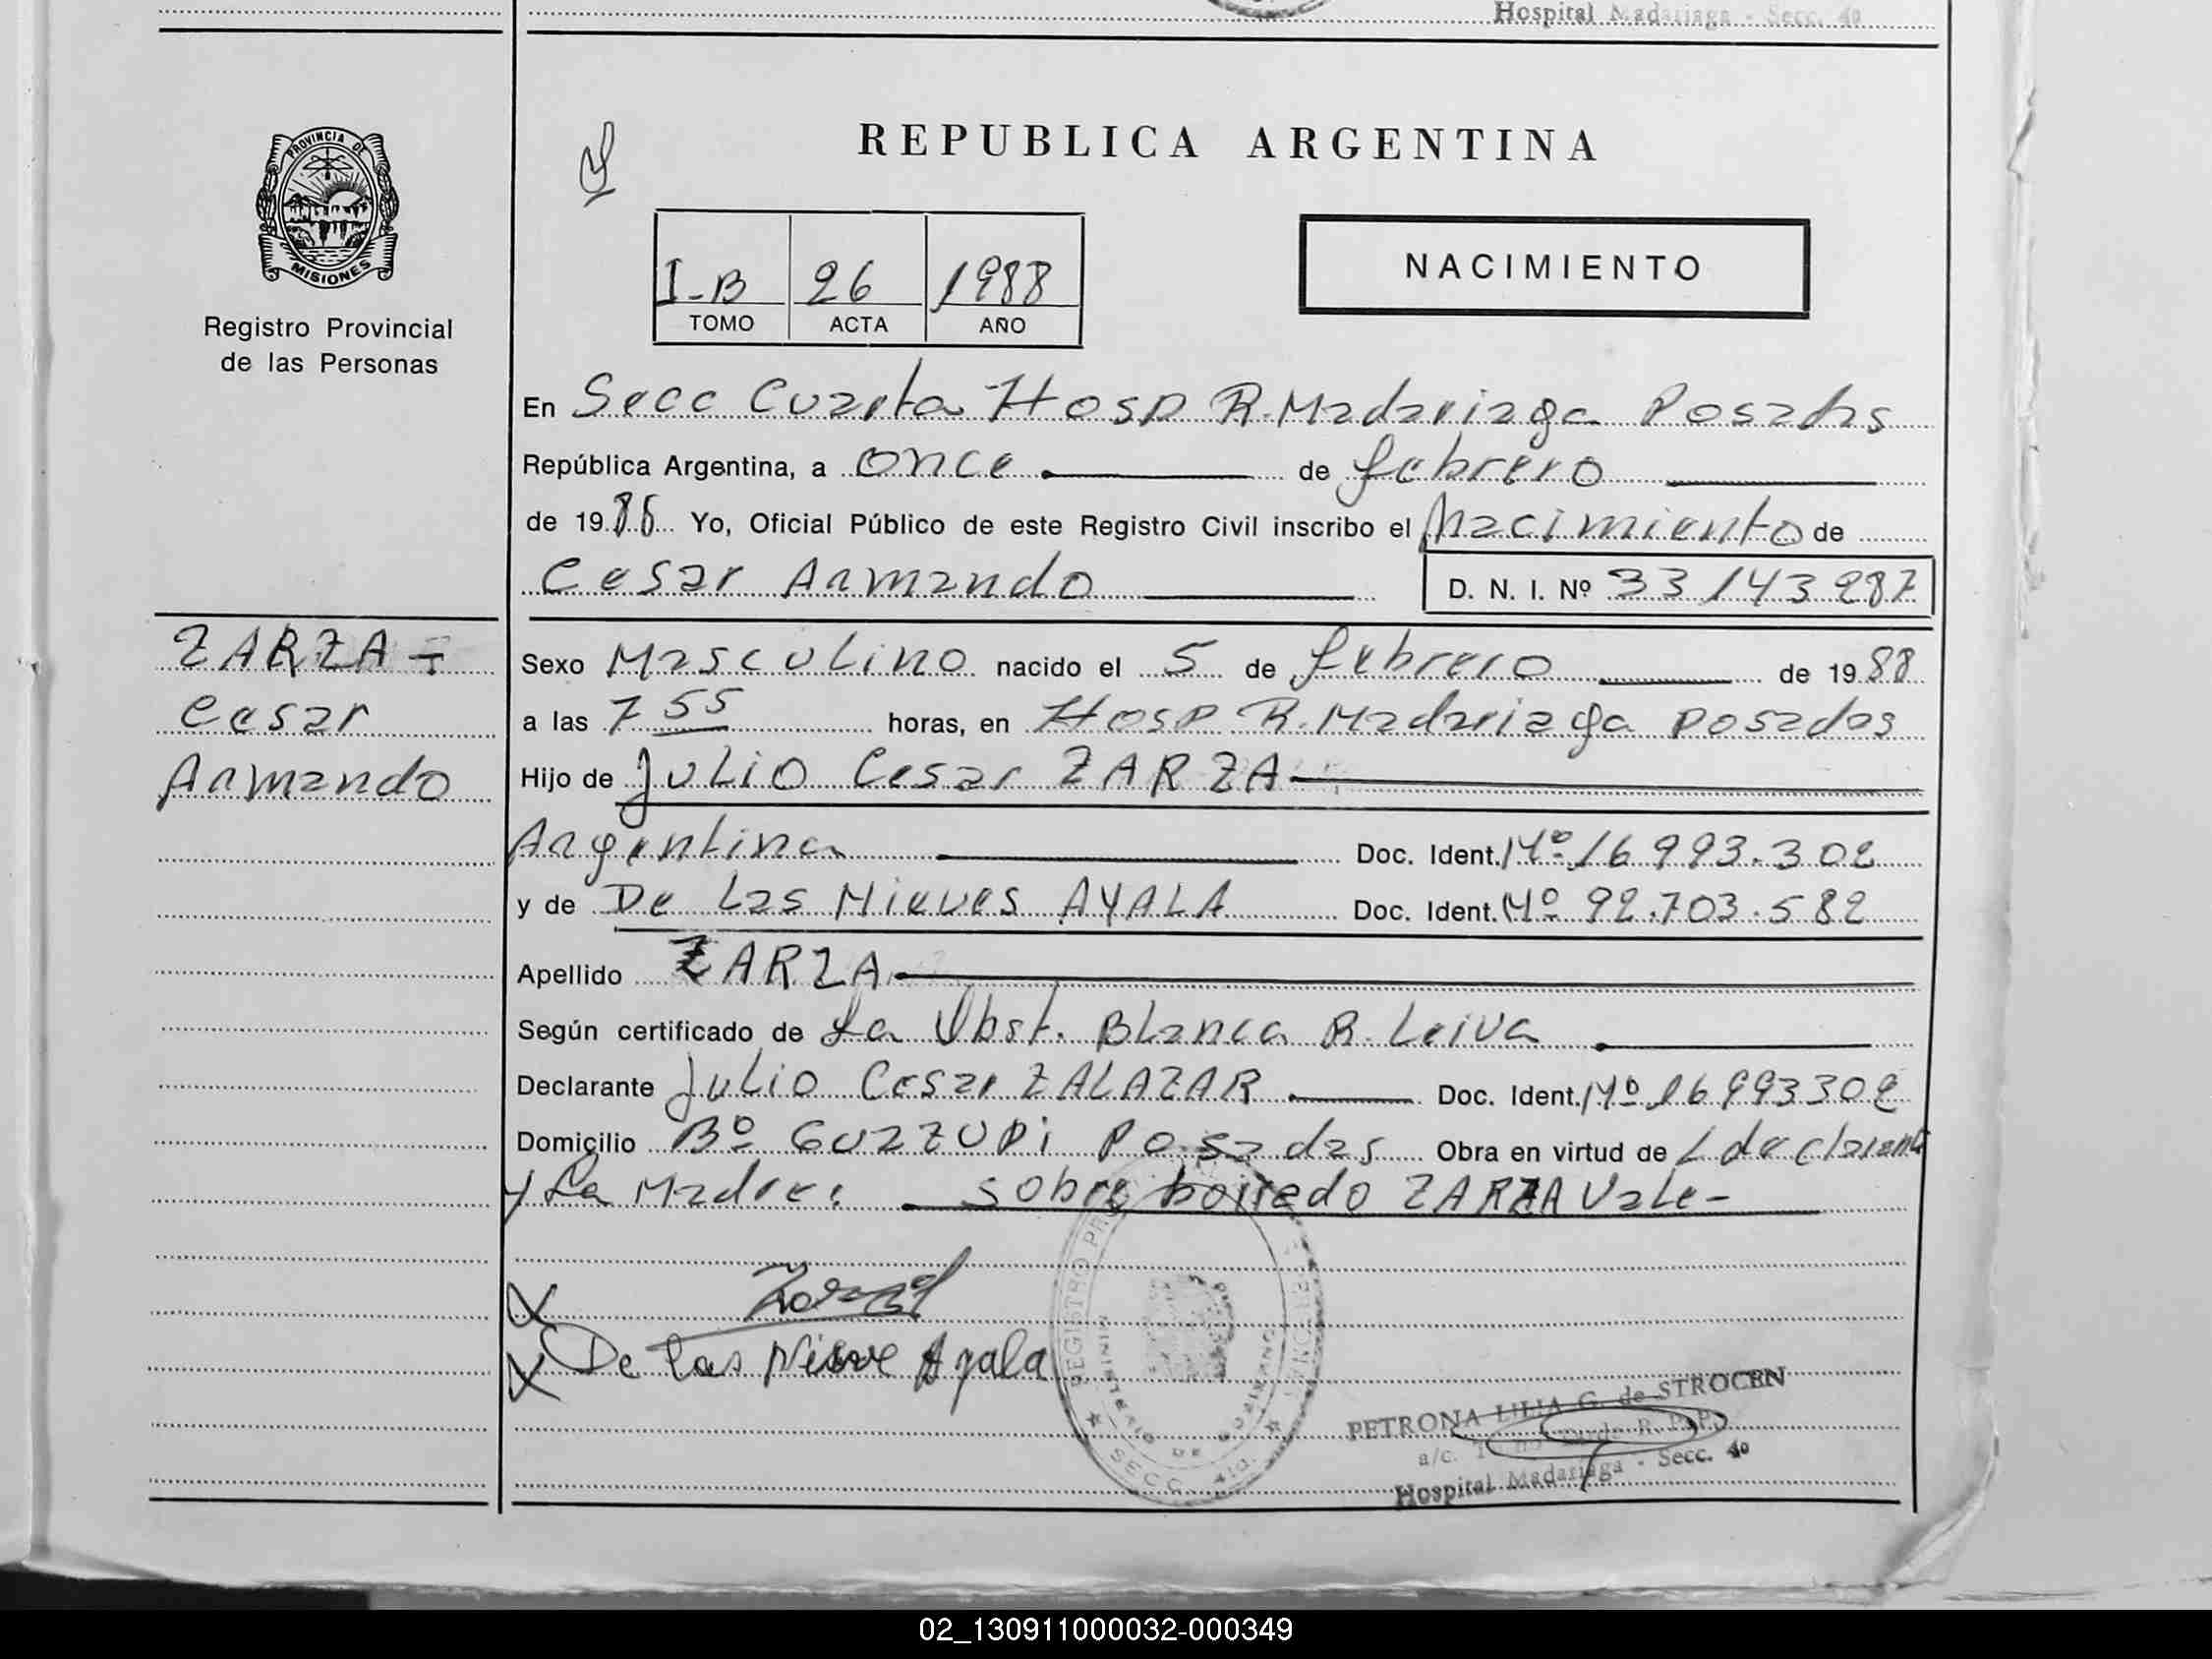 Hospital Madariaga - Secc. 4º
PROVINCIA DE
MISIONES
Registro Provincial
de las Personas
REPUBLICA ARGENTINA
I-B 26 1988
TOMO ACTA AÑO
NACIMIENTO
En Secc Cuarta Hosp R. Madariaga Posadas
República Argentina, a once de febrero
de 1988 Yo, Oficial Público de este Registro Civil inscribo el Nacimiento de
Cesar Armando D. N. I. Nº 33143287
ZARZA -
Cesar
Armando
Sexo Masculino nacido el 5 de febrero de 1988
a las 7 55 horas, en Hosp R. Madariaga Posadas
Hijo de Julio Cesar ZARZA
Argentina Doc. Ident. Nº 16993.302
y de De Las Nieves AYALA Doc. Ident. Nº 92.703.582
Apellido ZARZA
Según certificado de La Obst. Blanca R. Leiva
Declarante Julio Cesar ZALAZAR Doc. Ident. Nº 16993302
Domicilio Bº GUZZUPi Posadas Obra en virtud de L declarante
y La Madre. sobre borrado ZARZA Vale-
De las Nieve Ayala
REGISTRO PROVINCIAL DE LAS PERSONAS
MINISTERIO DE GOBIERNO
SECC. 4ta.
PETRONA LILIA G. de STROCEN
a/c. R. P. P.
Hospital Madariaga - Secc. 4º
02_130911000032-000349